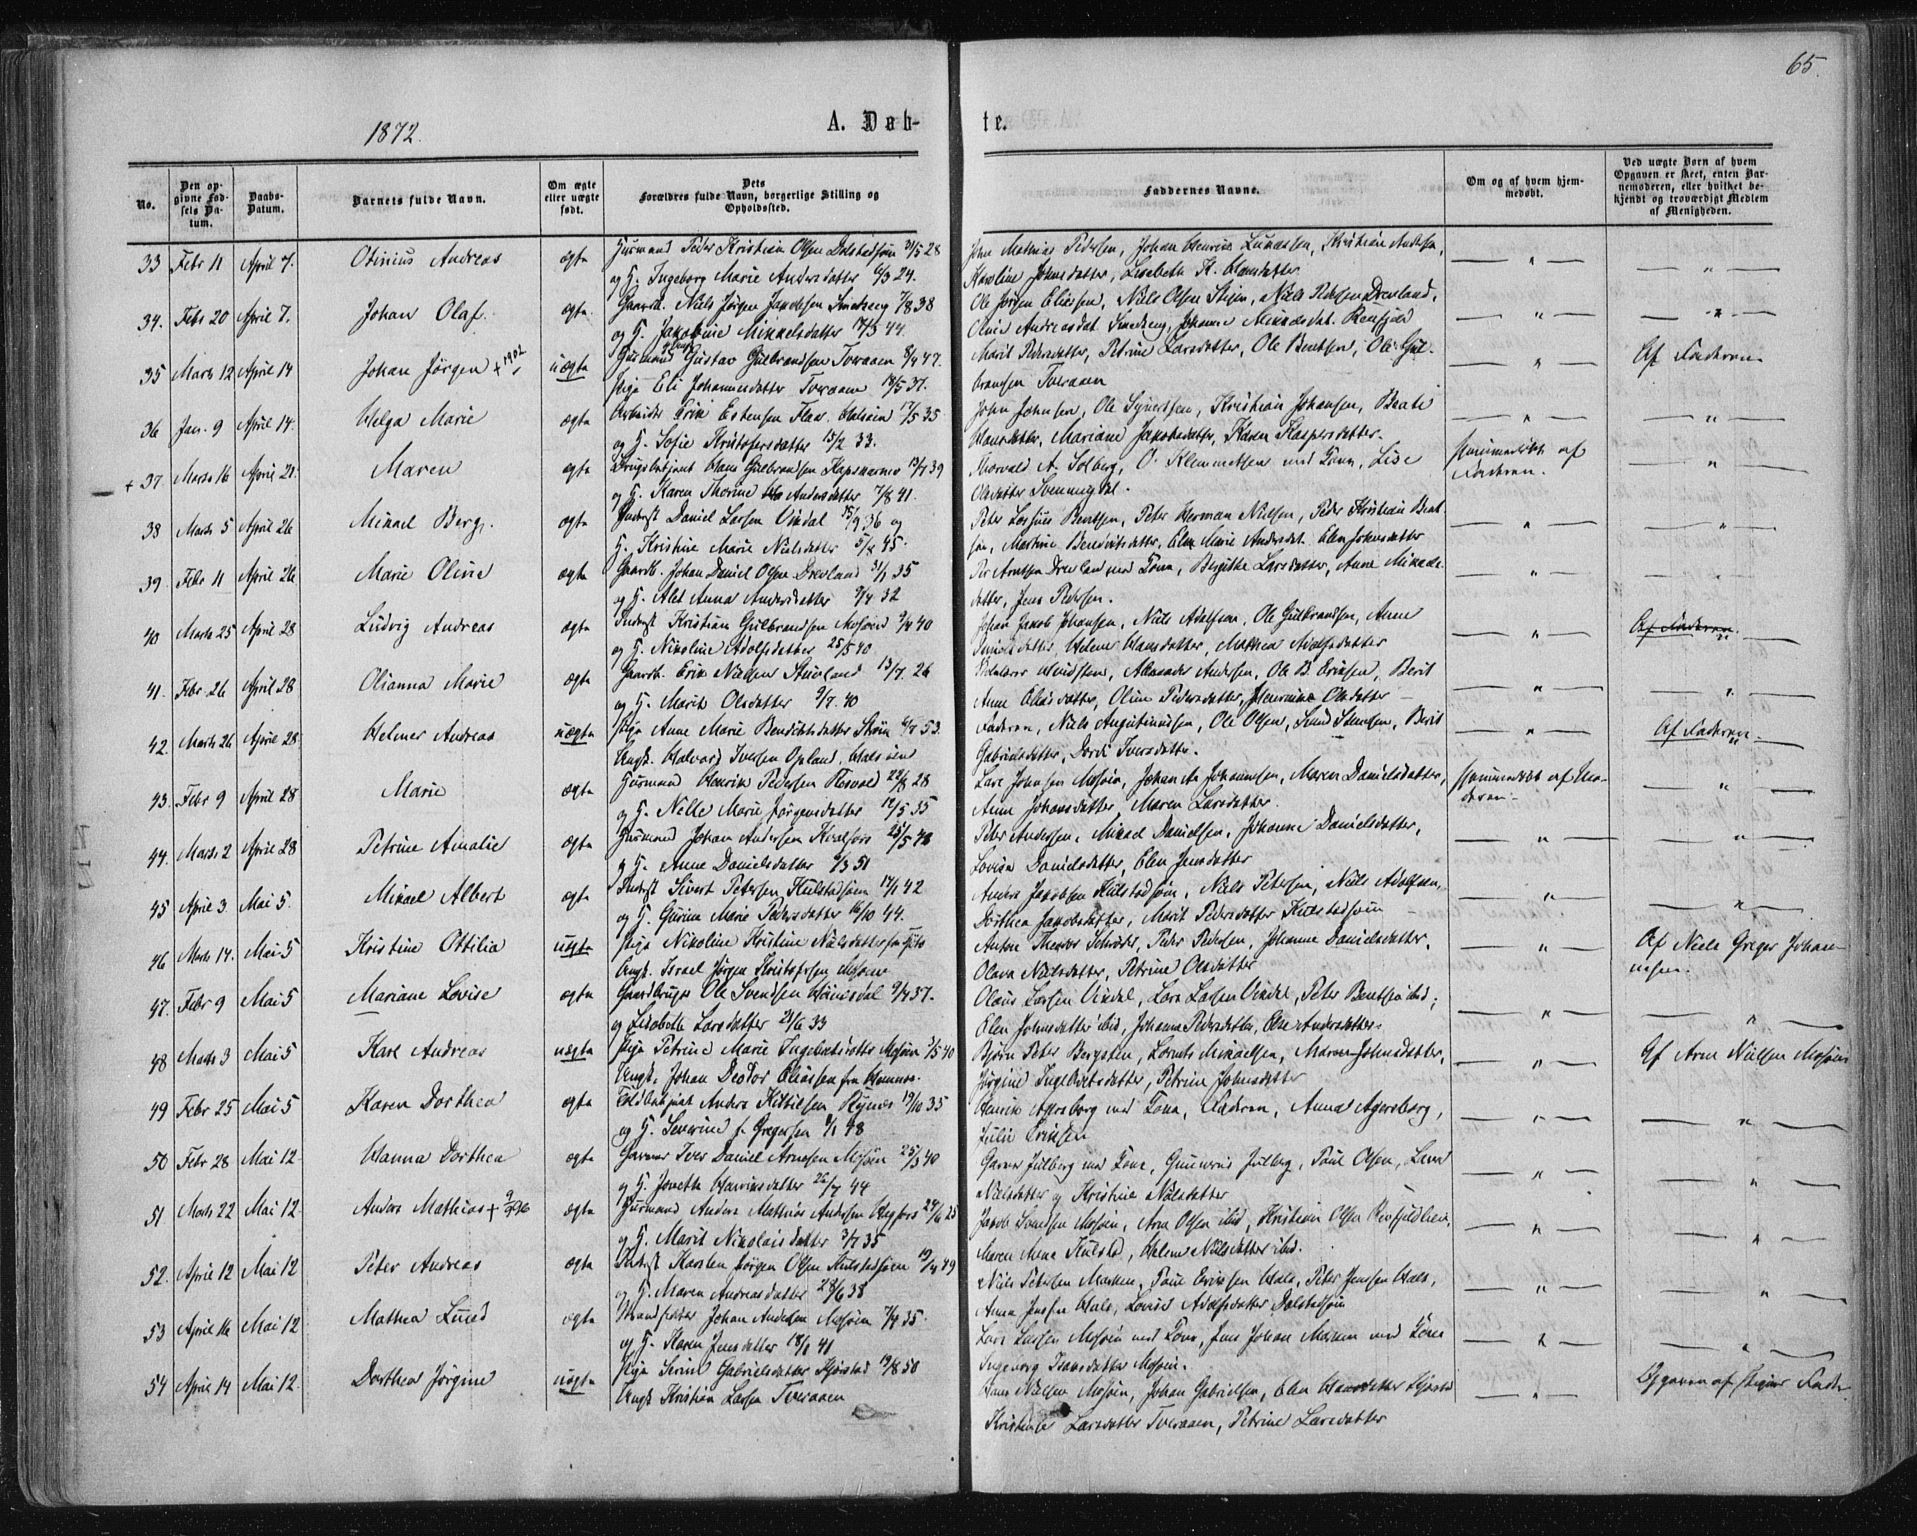 65.
1872.
A. Døb-
te.
No.
Den op-
givne Fød-
sels Da-
tum.
Daabs-
Datum.
Barnets fulde Navn.
Om ægte
eller uægte
født.
Dets
Forældres fulde Navn, borgerlige Stilling og
Opholdssted.
Faddernes Navne.
Om og af hvem hjem-
medøbt.
Ved uægte Børn af hvem
Opgaven er skeet, enten Bar-
nemoderen, eller hvilket be-
kjendt og troværdigt Medlem
af Menigheden.
33 Febr 11 April 7. Otinius Andreas ægte Huusmand Peder Kristian Olsen Dolstadsøien 31/5 28
og H. Ingeborg Marie Andersdatter 6/3 24.
John Mathias Pedersen, Johan Henrik Lukassen, Kristian Andersen,
Karoline Johnsdatter, Lisebeth K. Hansdatter
34. Febr 20 April 7. Johan Olaf ægte Gaardb. Niels Jørgen Jakobsen Smedseng 7/8 38
og H. Jakobine Mikkelsdatter 17/3 44.
Ole Jørgen Eliassen, Niels Olsen Stien, Niels Pedersen Drevland,
Oline Andreasdat. Smedseng, Johanne Nilsdat. Remfjeld
35 Marts 12 April 14 Johan Jørgen + 1902 uægte Huusmand Gustav Gulbrandsen Tveraaen 8/4 47.
Pige Eli Johannesdatter Tveraaen 18/5 37.
Marit Pedersdatter, Petrine Larsdatter, Ole Bentsen, Ole Gul-
brandsen Tveraaen
Af Faderen
36 Jan. 9 April 14. Helga Marie ægte Arbeider Erik Estensen Flaa Halsøien 17/5 35
og H. Sofie Kristofersdatter 13/2 33.
John Johnsen, Ole Sivertsen, Kristian Johansen, Beate
Hansdatter, Mariane Jakobsdatter, Karen Kaspersdatter.
+ 37 Marts 16 April 21. Maren ægte Brugsbetjent Hans Gulbrandsen Kapskarmo 13/7 39
og H. Karen Thorine Andersdatter 7/8 41.
Thorvald A. Solberg, O. Klemmetsen med Kone, Lise
Olsdatter Svenningdal.
Hjemmedøbt af
Faderen.
38 Marts 5 April 26 Mikael Berg. ægte Inderst Daniel Larsen Vindal 15/9 36 og
H. Kristine Marie Nielsdatter 5/8 45.
Peter Bentsen, Peter Herman Nielsen, Peder Kristian Bent-
sen, Martine Bendiktsdatter, Elen Marie Andersdat. Elen Johnsdatter
39. Febr 11 April 26 Marie Oline ægte Gaardb. Johan Daniel Olsen Drevland 31/1 35
og H. Alet Anna Andersdatter 9/4 32
Per Arntsen Drevland med Kone, Bergithe Larsdatter, Anne Mikkels-
datter, Jens Pedersen.
40 Marts 25 April 28 Ludvig Andreas ægte Inderst Kristian Gulbrandsen Mosøien 9/4 40
og H. Nikoline Adolfsdatter 25/5 40
Johan Jakob Johansen, Niels Adolfsen, Ole Gulbrandsen, Anne
Helene Hansdatter, Mathea Adolfsdatter
Af Faderen
41. Febr 26 April 28 Olianna Marie ægte Gaardb. Erik Nielsen Stuvland 13/7 26
og H. Marit Olsdatter 9/7 40
Alexander Andersen, Ole B. Eriksen, Berit
Anne Eliasdatter, Oline Pedersdatter, Henrikke Olsdatter
42. Marts 26 April 28 Helmer Andreas uægte Pige Anne Marie Bendiktsdatter Strøm 6/7 53.
Ungk. Halvard Iversen Opland, Halsøien
Faderen, Niels Augustinussen, Ole Olsen, Svend Svendsen, Berit
Gabrielsdatter, Dordi Iversdatter.
Af Faderen.
43. Febr 9 April 28 Marie ægte Huusmand Henrik Pedersen Rosvold 22/8 28
og H. Nelle Marie Jørgensdatter 12/5 35
Lars Johnsen Mosøien, Johan A. Johannesen, Maren Danielsdatter,
Anne Johansdatter, Maren Larsdatter.
Hjemmedøbt af Fa-
deren.
44. Marts 2 April 28 Petrine Amalie ægte Huusmand Johan Andersen Kvalfors 25/5 48
og H. Anne Danielsdatter 6/3 51
Peter Andersen, Mikael Danielsen, Johanne Danielsdatter,
Lovise Danielsdatter, Elen Jensdatter
45 April 3. Mai 5. Mikael Albert ægte Inderst Sivert Petersen Kulstadsøien 17/1 42
og H. Gurine Marie Pedersdatter 16/10 44.
Anders Jakobsen Kulstadsøien, Niels Petersen, Niels Adolfsen,
Dorthea Jakobsdatter, Marit Pedersdatter Kulstadsøien
46 Marts 14. Mai 5 Kristine Ottilia uægte Pige Nikoline Kristine Nielsdatter
Ungk. Israel Jørgen Kristofersen Mosøien
Anton Theodor Schrøder, Peder Pedersen, Johanne Danielsdatter,
Olava Nielsdatter, Petrine Olsdatter
Af Niels Greger Johan-
nesen.
47. Febr 9 Mai 5 Mariane Lovise ægte Gaardbruger Ole Svendsen 9/4 37.
og Lisabeth Larsdatter 21/6 33
Olaus Larsen Vindal, Lars Larsen Vindal, Peter Bentsen ibid,
Elen Johnsdatter ibid, Johanna Pedersdatter, Elen Andersdatter.
48 Marts 3 Mai 5 Karl Andreas uægte Pige Petrine Marie Ingebrigtsdatter Mosøien 3/5 40
Ungk. Johan Deodor Eliassen fra Hemnes.
Bjørn Peter Bergsten, Lornts Mikaelsen, Maren Johnsdatter,
Jørgine Ingebrigtsdatter, Petrine Johnsdatter
Af Arne Nielsen Mosøien
49 Febr 25 Mai 5 Karen Dorthea ægte Toldbetjent Anders Kittilsen Rynes 19/10 35
og H. Severine f. Gregersen 9/1 48
Henrik Agersborg med Kone, Faderen, Anna Agersborg,
Julie Eriksen
50 Febr 28 Mai 12 Hanna Dorthea ægte Garver Iver Daniel Arnesen Mosøien 25/3 40
og H. Joneth Henriksdatter 26/7 44
Garver Julberg med Kone, Gunerius Julberg, Paul Olsen, Lava
Nielsdatter og Kristine Nielsdatter
51 Marts 22 Mai 12. Anders Mathias + ægte Huusmand Anders Mathias Andersen Høgfors 24/6 25
og H. Marit Nikolaisdatter 3/7 35
Jakob Svendsen Mosøien, Arn Olsen ibid, Kristian Olsen Remfjeldlien,
Maren Anna Kulstad, Helene Nielsdatter ibid.
52. April 12 Mai 12 Peter Andreas ægte Inderst Karsten Jørgen Olsen Kulstadsøien 19/4 49
og H. Maren Andreasdatter 28/6 38
Niels Petersen Marken, Paul Eriksen Hals, Peter Jenssen Hals,
Anna Jensen Hals, Lovise Adolfsdatter Dolstadsøien
53 April 16 Mai 12 Mathea ægte Strandsidder Johan Andersen Mosøien 7/4 35.
og H. Karen Jensdatter 18/1 41
Lars Larsen Mosøien med Kone, Jens Johan Marken med Kone
Ingeborg Isaksdatter Mosøien.
54 April 14 Mai 12. Dorthea Jørgine uægte Pige Serine Gabrielsdatter Kjørstad 19/8 50
Ungk Kristian Larsen Tveraaen
Hans Nielsen Mosøien, Johan Gabrielsen, Elen Hansdatter Kjørstad
Kristense Larsdatter Tveraaen, Petrine Larsdatter
Opgaven af Pigens Fader